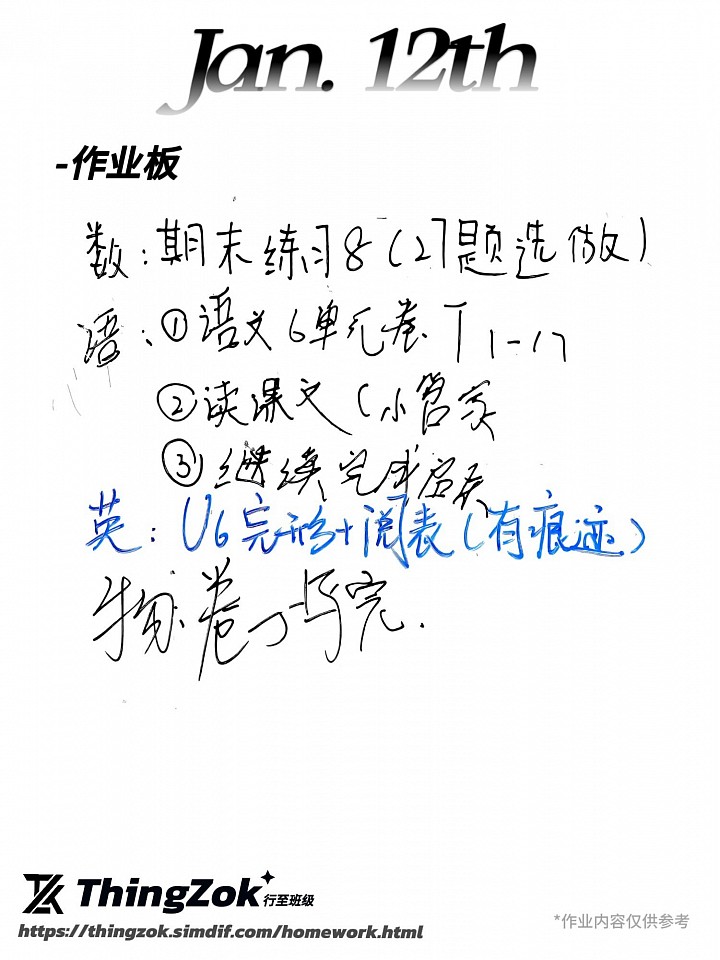 Jan. 12th
-作业板
数:期末练习8(27题选做)
语:①语文6单元卷 T1-17
②读课文(小管家
③继续完成
英:U6完形+阅表(有痕迹)
物:卷 写完.
ThingZok 行至班级
https://thingzok.simdif.com/homework.html
*作业内容仅供参考